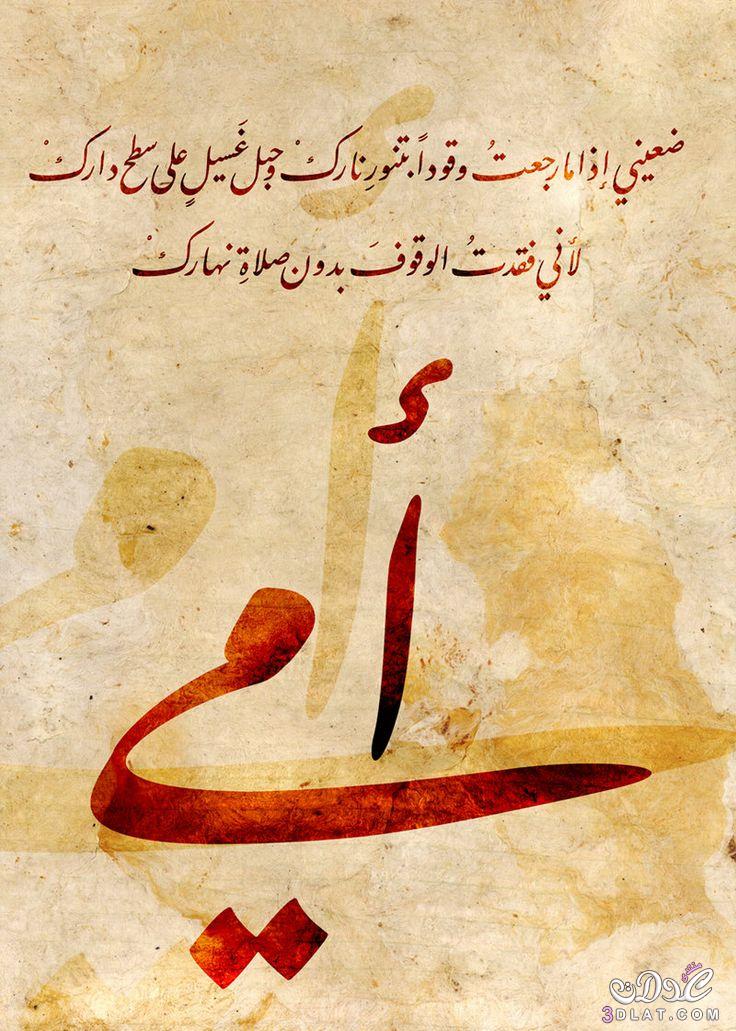 ضعيني إذا ما رجعتُ وقوداً بتنورِ ناركْ وحبل غَسيلٍ على سطح داركْ
لأني فقدتُ الوقوفَ بدون صلاةِ نهاركْ
أمي
منتدى عدلات
3DLAT.COM